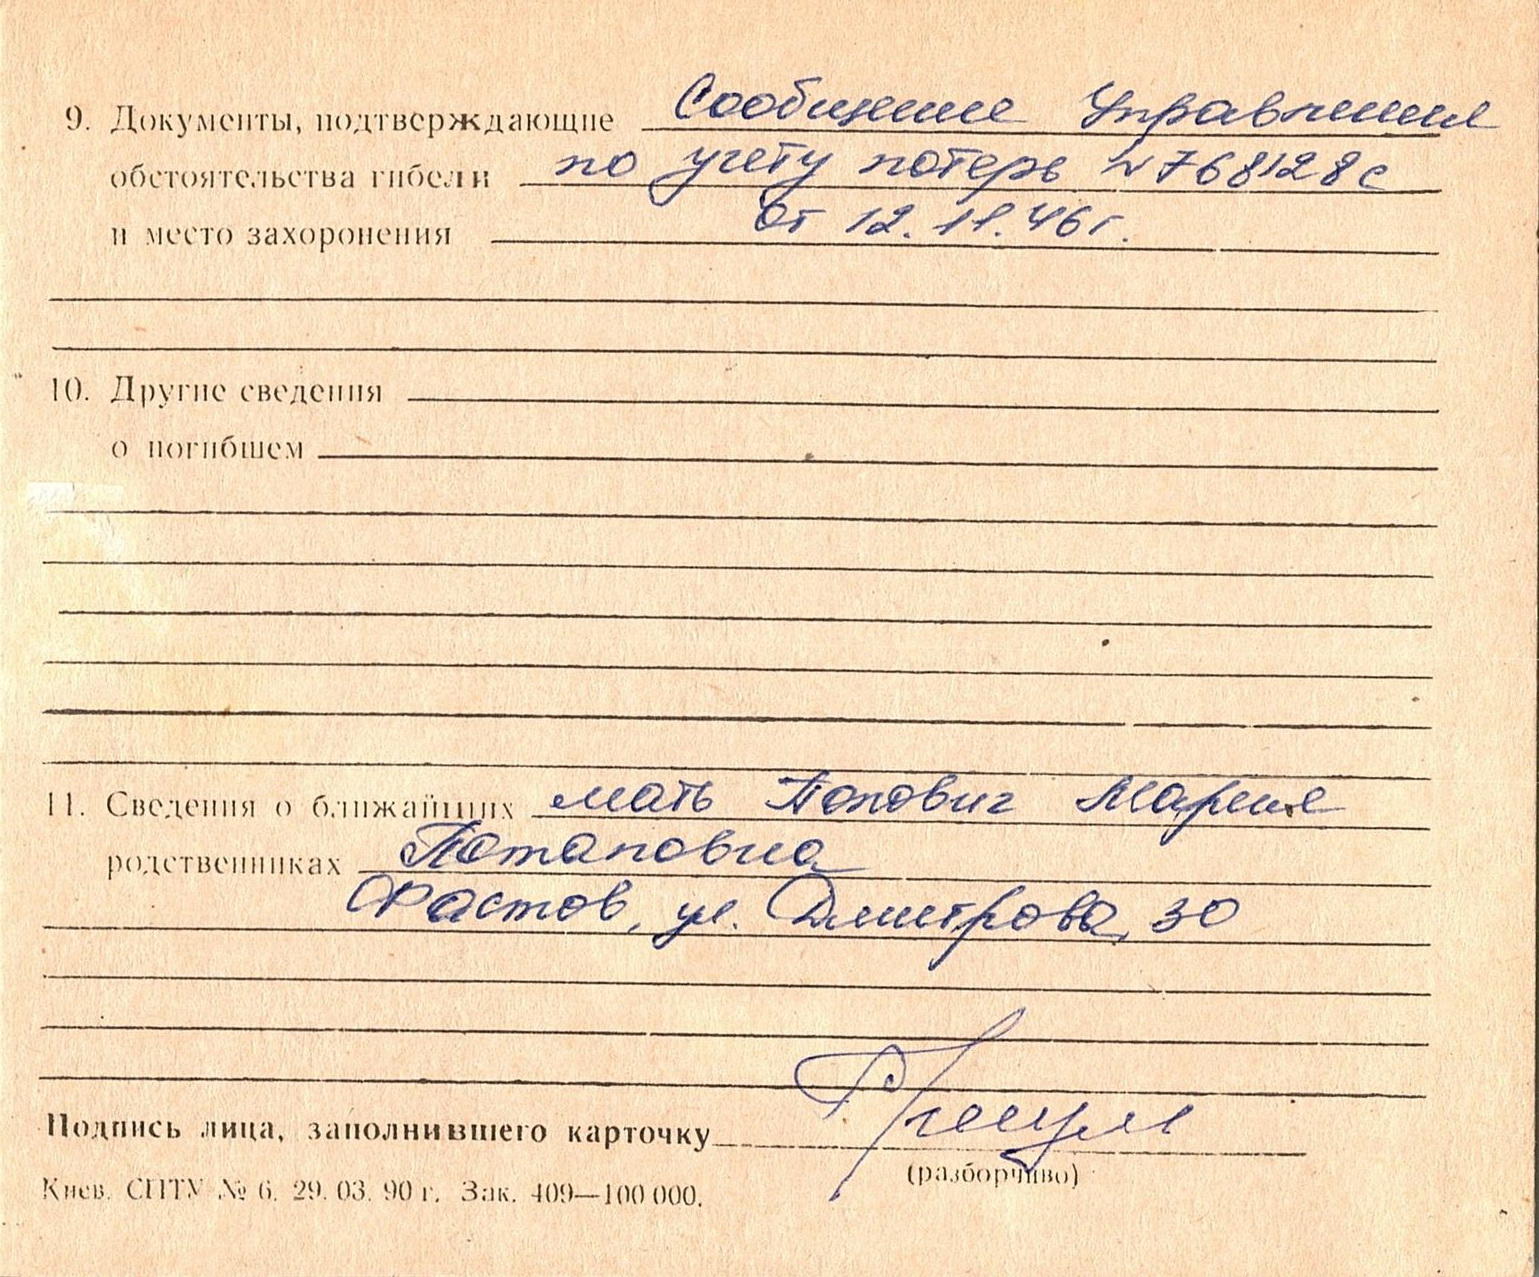 9. Документы, подтверждающие Сообщение Управления
обстоятельства гибели по учету потерь N 768128с
и место захоронения от 12.11.46 г.
10. Другие сведения
о погибшем
11. Сведения о ближайших мать Попович Мария
родственниках Потаповна
Фастов, ул. Дмитрова, 30
Подпись лица, заполнившего карточку
(разборчиво)
Киев. СПТУ № 6. 29. 03. 90 г. Зак. 409—100 000.